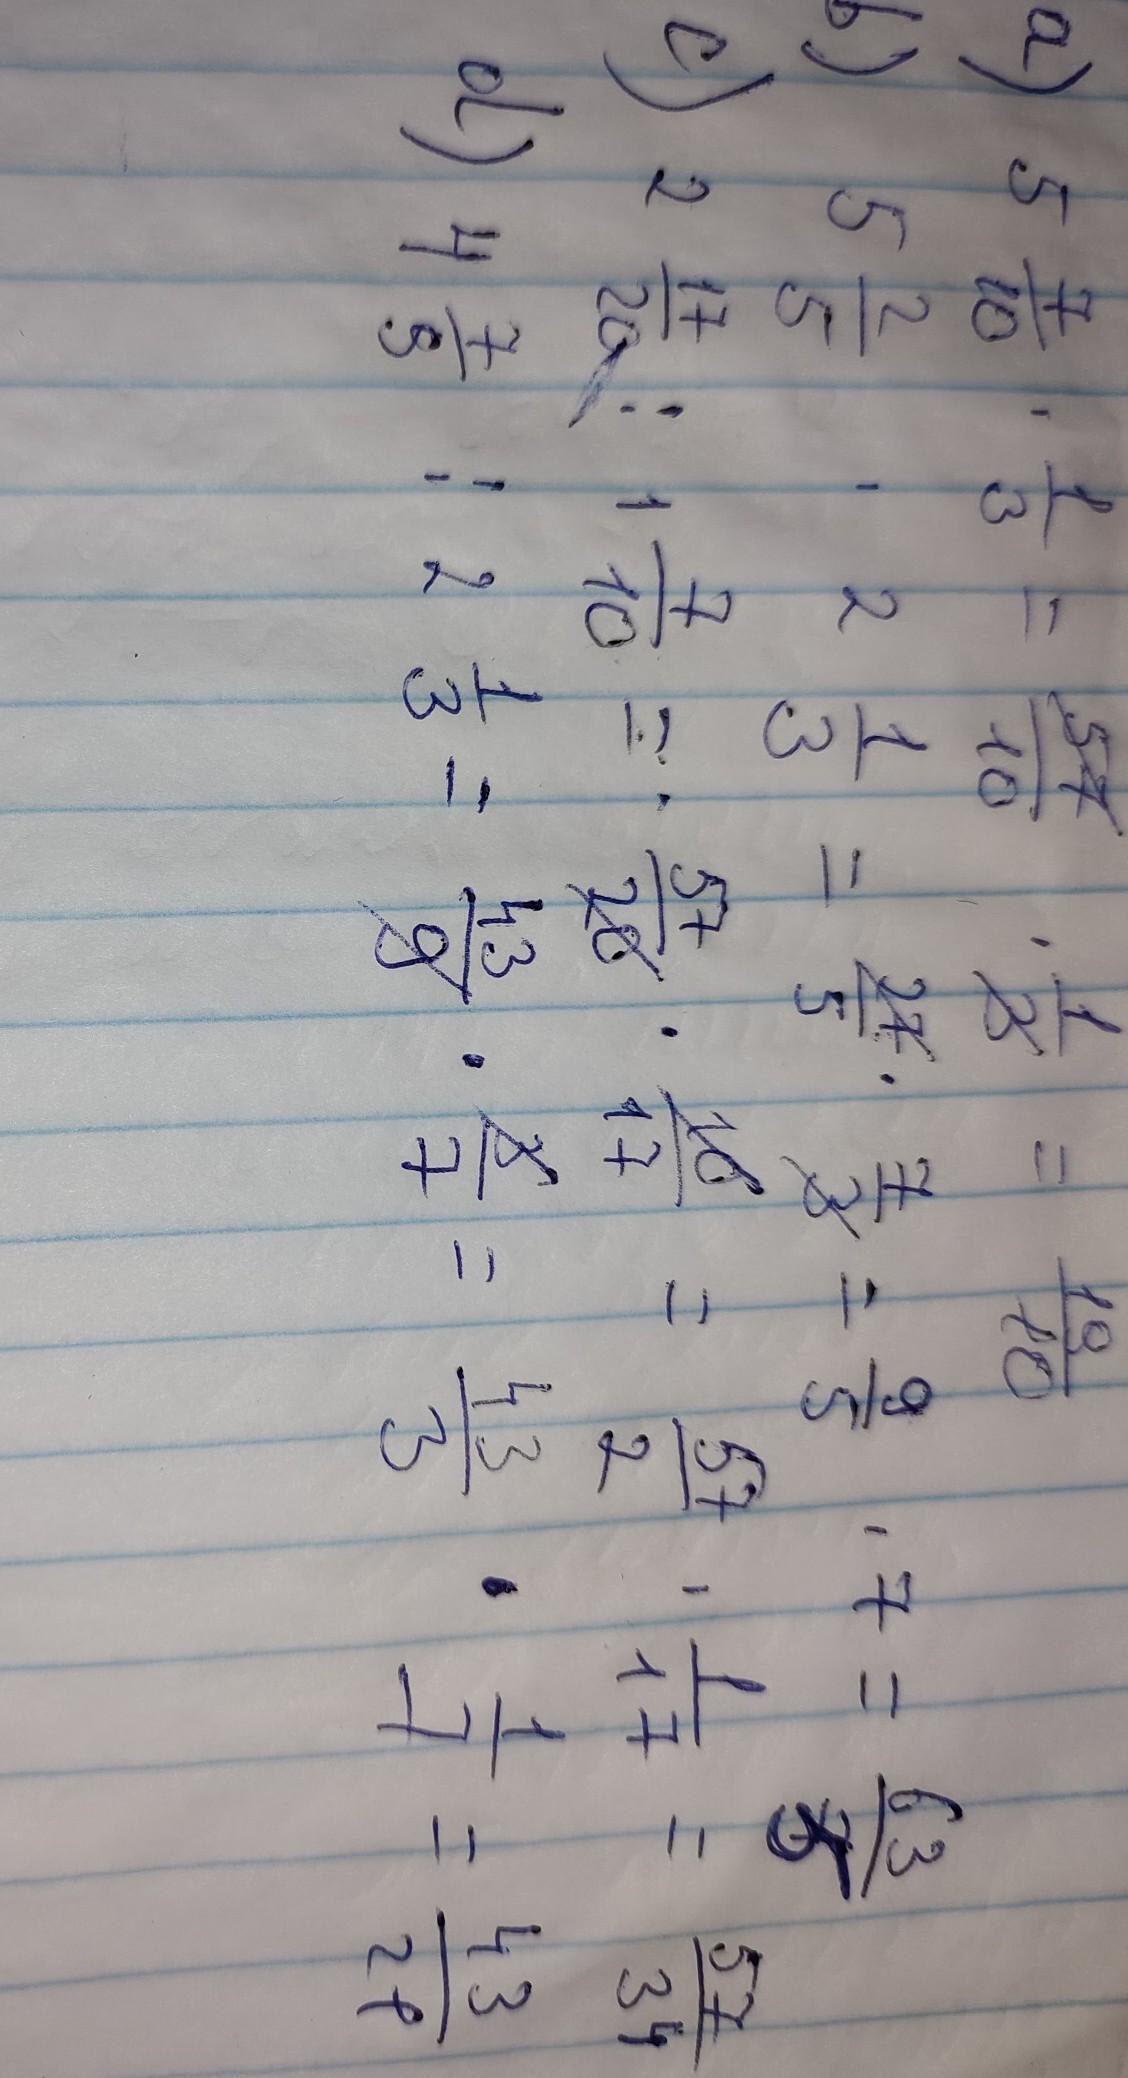 a) 5 7/10 · 1/3 = 57/10 · 1/3 = 19/10
b) 5 2/5 · 2 1/3 = 27/5 · 7/3 = 9/5 · 7 = 63/5
c) 2 17/20 : 1 7/10 = 57/20 · 10/17 = 57/2 · 1/17 = 57/34
d) 4 7/9 : 2 1/3 = 43/9 · 3/7 = 43/3 · 1/7 = 43/21